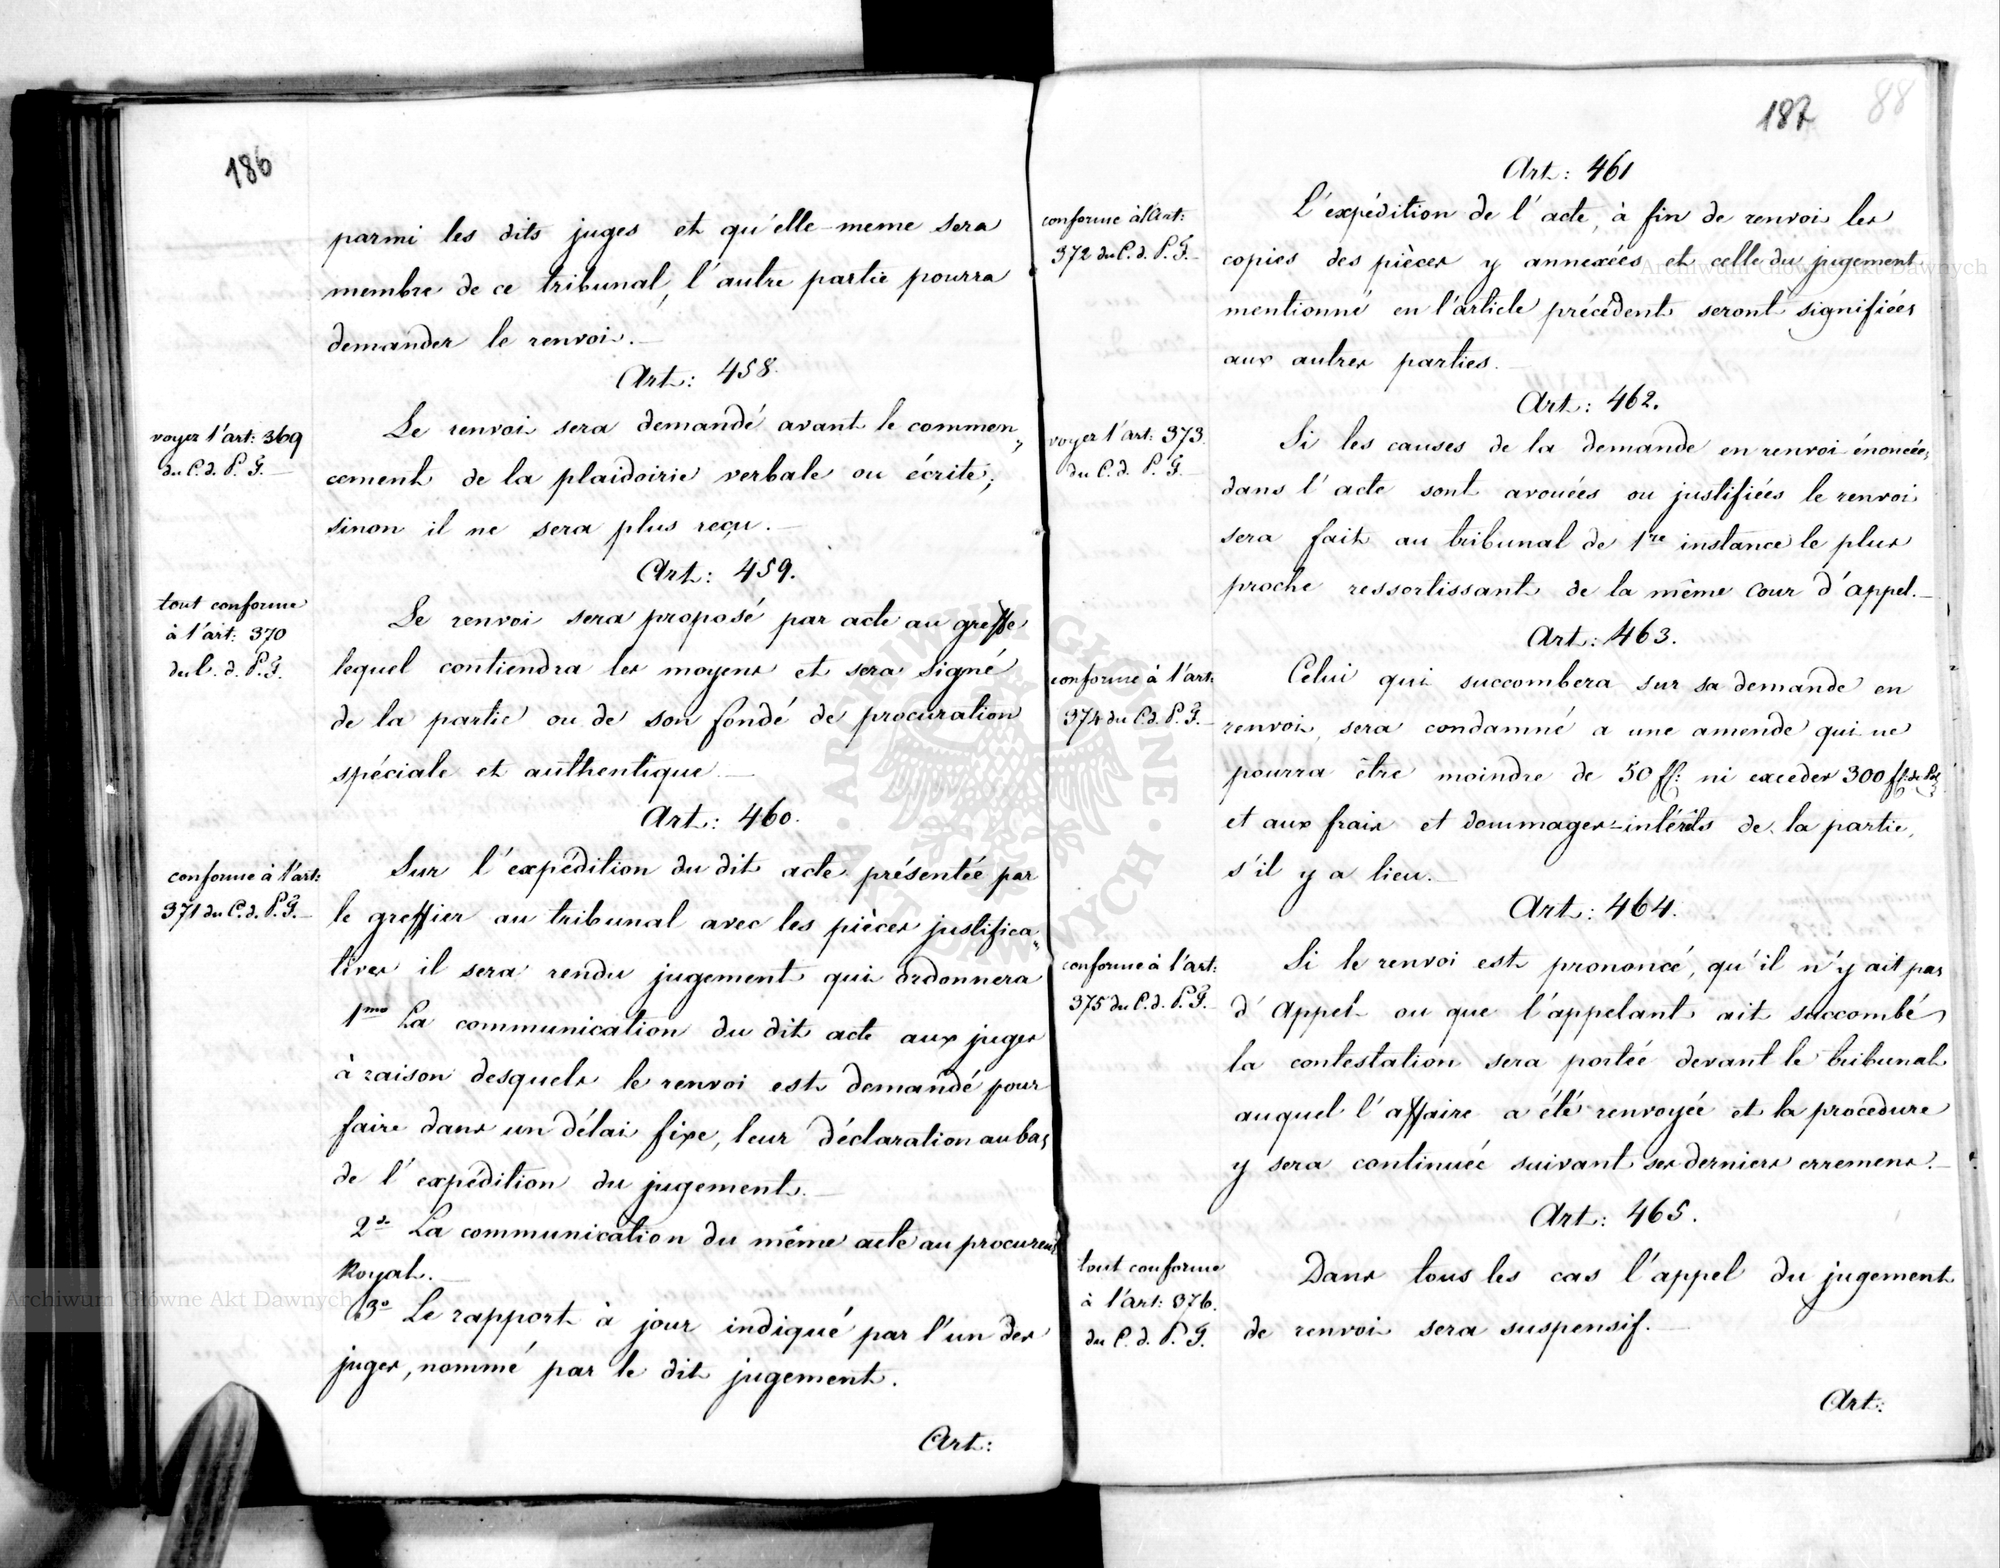 186
parmi les dits juges et qu'elle-meme sera
membre de ce tribunal, l'autre partie pourra
demander le renvoi.
Art: 458.
voyez l'art: 369
du C. d. P. F.
Le renvoi sera demandé avant le commen„
cement de la plaidoirie verbale ou écrite;
sinon il ne sera plus reçu.
Art: 459.
tout conforme
à l'art: 370
du C. d. P. F.
Le renvoi sera proposé par acte au greffe
lequel contiendra les moyens et sera signé
de la partie ou de son fondé de procuration
spéciale et authentique
Art: 460.
conforme à l'art:
371 du C. d. P. F.
Sur l'expédition du dit acte présentée par
le greffier au tribunal avec les pièces justifica„
tives il sera rendu jugement qui ordonnera
1mo La communication du dit acte aux juges
à raison desquels le renvoi est demandé pour
faire dans un délai fixe, leur déclaration au bas
de l'expédition du jugement.
2do La communication du même acte au procureur
Royal.
3o Le rapport à jour indiqué par l'un des
juges, nommé par le dit jugement.
Art:
187
88
Art: 461
conforme à l'Art:
372 du C. d. P. F.
L'expédition de l'acte, à fin de renvoi les
copies des pièces y annexées et celle du jugement
mentionné en l'article précédent seront signifiées
aux autres parties.
Art: 462.
voyez l'art: 373.
du C. d. P. F.
Si les causes de la demande en renvoi énoncées
dans l'acte sont avouées ou justifiées le renvoi
sera fait au tribunal de 1re instance le plus
proche ressortissant de la même Cour d'appel.
Art: 463.
conforme à l'art:
374 du C. d. P. F.
Celui qui succombera sur sa demande en
renvoi, sera condamné a une amende qui ne
pourra être moindre de 50 ff: ni exceder 300 ff: de Pol
et aux frais et dommages-intérêts de la partie,
s'il y a lieu.
Art: 464.
conforme à l'art:
375 du C. d. P. F.
Si le renvoi est prononcé, qu'il n'y ait pas
d'Appel ou que l'appelant ait succombé,
la contestation sera portée devant le tribunal
auquel l'affaire a été renvoyée et la procedure
y sera continuée suivant ses derniers erremens.
Art: 465.
tout conforme
à l'art: 376.
du C. d. P. F.
Dans tous les cas l'appel du jugement
de renvoi sera suspensif.
Art:
Archiwum Główne Akt Dawnych
Archiwum Główne Akt Dawnych
ARCHIWUM GŁÓWNE AKT DAWNYCH